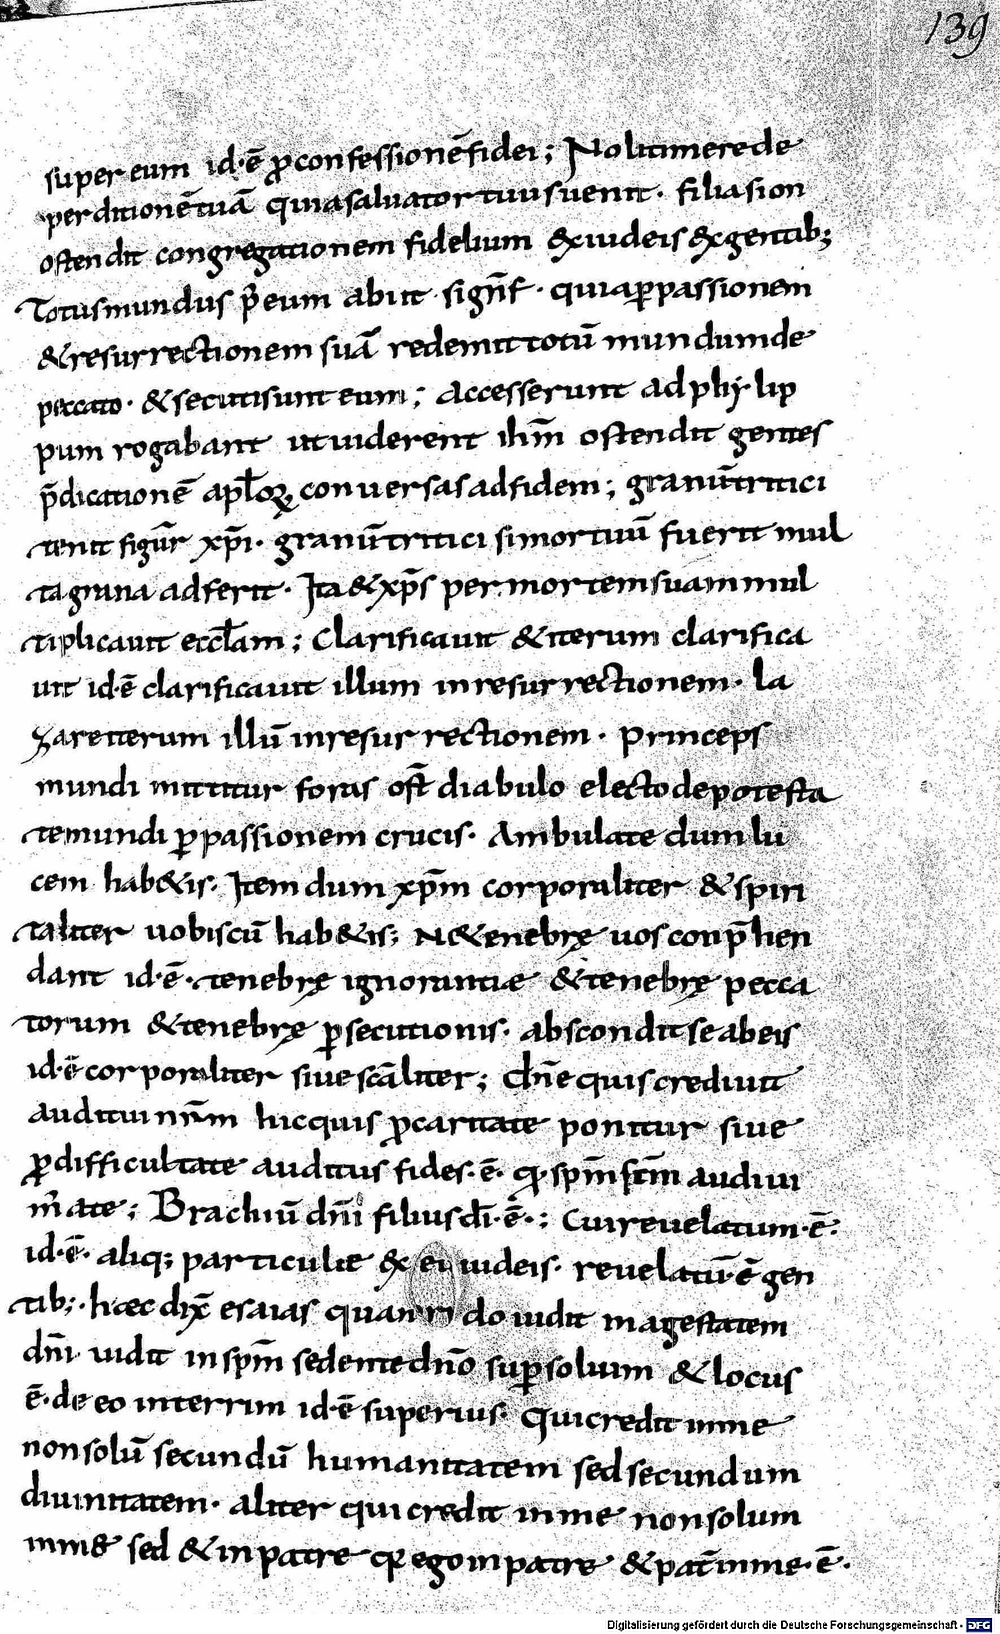 139
super eum id·ē ꝓ confessionē fidei; Noli timere de
perditionē tuā quia saluator tuus uenit· filia sion
ostendit congregationem fidelium & iudeis & gentib;
Totus mundus p̄ eum abiit signif̄· quia ꝑ passionem
& resurrectionem suā redemit totū mundum de
peccato· & secuti sunt eum; Accesserunt ad phylip
pum rogabant ut uiderent ihm̄ ostendit gentes
p̄dicationē aplōꝝ conuersas ad fidem; granū tritici
tenit figūr xp̄i· granū tritici si mortuū fuerit mul
ta grana adferit· Ita & xp̄s per mortem suam mul
tiplicauit eccłam; Clarificauit & iterum clarifica
uit id·ē clarificauit illum in resurrectionem· la
zar & iterum illū in resurrectionem· princeps
mundi mittitur foras ost̄ diabulo electo de potesta
te mundi ꝑ passionem crucis· Ambulate dum lu
cem hab&is· Item dum xp̄m corporaliter & spiri
taliter uobiscū hab&is; N& tenebrę uos conp̄hen
dant id·ē· tenebrę ignorantiæ & tenebrę pecca
torum & tenebrę ꝑsecutionis· abscondit se ab eis
id·ē corporaliter siue scāliter; dn̄e quis crediuit
auditui nr̄m hic quis ꝓ caritate ponitur siue
ꝓ difficultate auditus fides·ē· qꝛ spm̄ scm̄ audiui
m̄ a te; Brachiū dn̄i filius dī·ē·; Cui reuelatum·ē·
id·ē· aliq; particulæ & ei iudeis· reuelatū·ē gen
tib;· hæc dix̄ esaias quan do uidit magestatem
dn̄i uidit in spm̄ sedente dn̄o suꝑ solium & locus
ē· de eo interrim id·ē superius· Qui credit in me
non solū secundū humanitatem sed secundum
diuinitatem· aliter qui credit in me non solum
in me sed & in patre qꝛ ego in patre & pat̄ in me·ē·
Digitalisierung gefördert durch die Deutsche Forschungsgemeinschaft - DFG